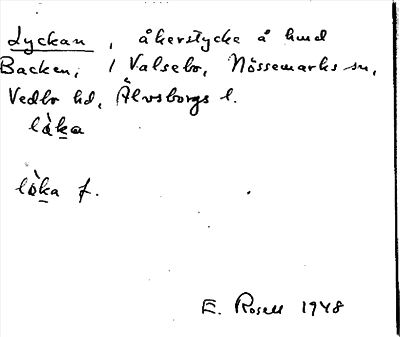 Lyckan, åkerstycke å hmd
Backen, i Valsebo, Nössemarks sn,
Vedbo hd, Älvsborgs l.
lò̀ka
lò̀ka f.
E. Rosell 1948